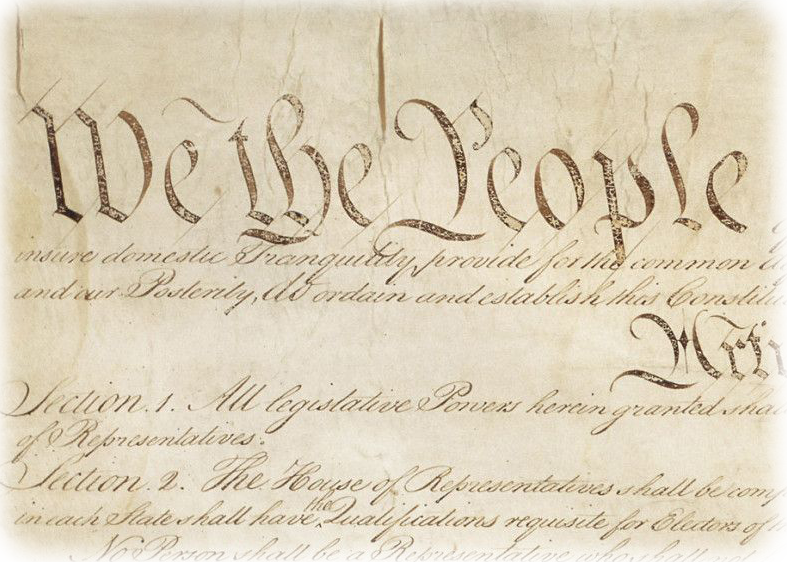 We the People
insure domestic Tranquility, provide for the common
and our Posterity, do ordain and establish this Constitu
Arti
Section. 1. All legislative Powers herein granted shal
of Representatives.
Section. 2. The House of Representatives shall be comp
in each State shall have the Qualifications requisite for Electors of
No Person shall be a Representative who shall not